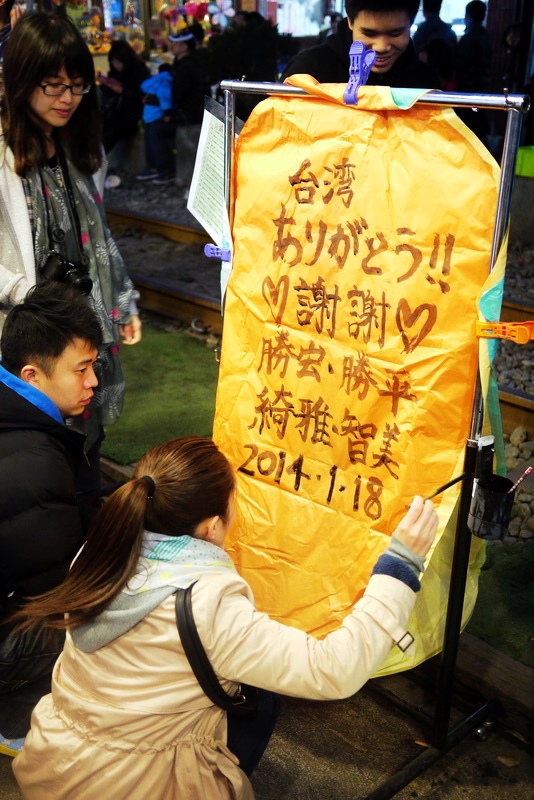 台湾
ありがとう!!
♡謝謝♡
勝宏・勝平
綺雅・智美
2014・1・18